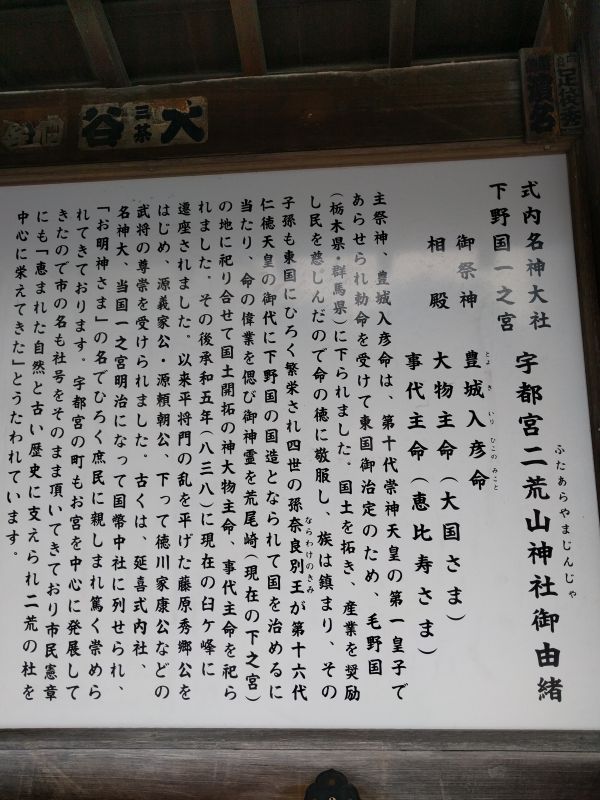 大谷
三茶
式内名神大社
下野国一之宮
宇都宮二荒山神社御由緒
ふたあらやまじんじゃ
御祭神 豊城入彦命
とよ き いり ひこの みこと
相殿 大物主命(大国さま)
事代主命(恵比寿さま)
主祭神、豊城入彦命は、第十代崇神天皇の第一皇子で
あらせられ勅命を受けて東国御治定のため、毛野国
(栃木県・群馬県)に下られました。国土を拓き、産業を奨励
し民を慈しんだので命の徳に敬服し、族は鎮まり、その
子孫も東国にひろく繁栄され四世の孫奈良別王が第十六代
ならわけのきみ
仁徳天皇の御代に下野国の国造となられて国を治めるに
当たり、命の偉業を偲び御神霊を荒尾崎(現在の下之宮)
の地に祀り合せて国土開拓の神大物主命、事代主命を祀ら
れました。その後承和五年(八三八)に現在の臼ケ峰に
遷座されました。以来平将門の乱を平げた藤原秀郷公を
はじめ、源義家公・源頼朝公、下って徳川家康公などの
武将の尊崇を受けられました。古くは、延喜式内社、
名神大、当国一之宮明治になって国幣中社に列せられ、
「お明神さま」の名でひろく庶民に親しまれ篤く崇めら
れてきております。宇都宮の町もお宮を中心に発展して
きたので市の名も社号をそのまま頂いてきており市民憲章
にも「恵まれた自然と古い歴史に支えられ二荒の杜を
中心に栄えてきた」とうたわれています。